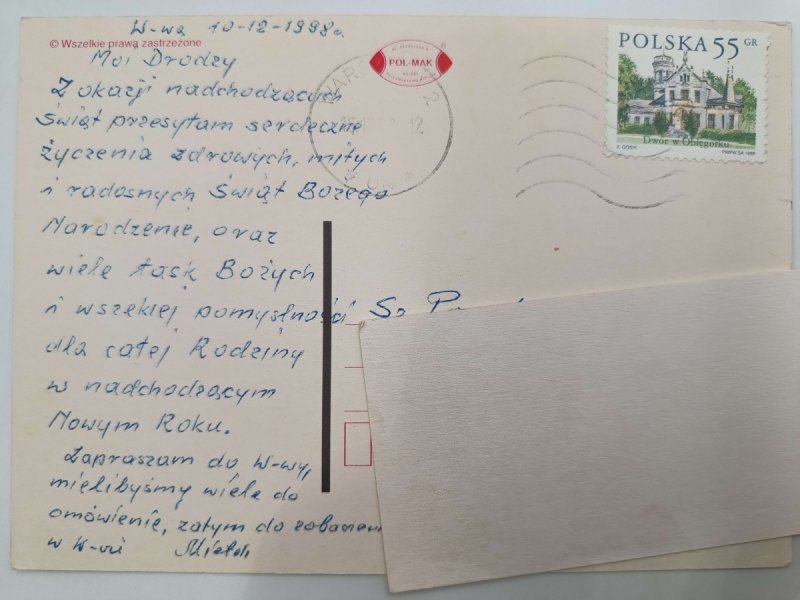 W-wa 10-12-1998r.
© Wszelkie prawa zastrzeżone
Moi Drodzy
Z okazji nadchodzących
Świąt przesyłam serdeczne
życzenia zdrowych, miłych
i radosnych Świąt Bożego
Narodzenie, oraz
wiele łask Bożych
i wszekiej pomyślności
dla całej Rodziny
w nadchodzącym
Nowym Roku.
Zapraszam do W-wy,
mielibyśmy wiele do
omówienie, zatym do zobaczeni
w W-wie
POL-MAK
12
POLSKA 55 GR
Dwór w Oblęgorku
PWPW SA 1998
Sz.